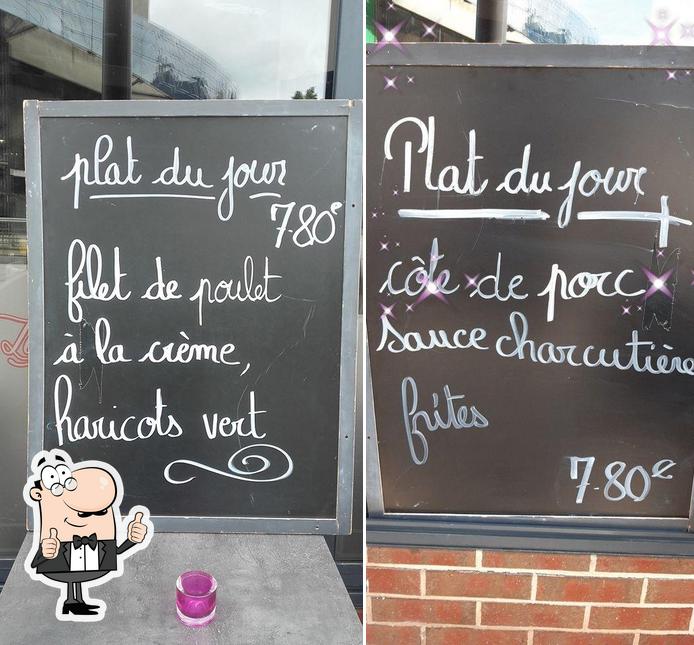 plat du jour
7.80€
filet de poulet
à la crème,
haricots vert
Plat du jour
côte de porc
sauce charcutière
frites
7.80€